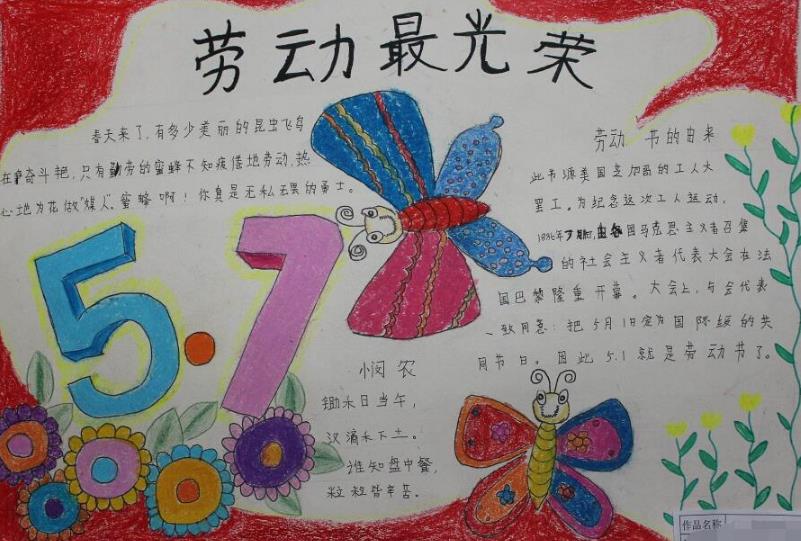 劳动最光荣
春天来了，有多少美丽的昆虫飞鸟
在奋斗耙，只有勤劳的蜜蜂不知疲倦地劳动，热
心地为花做“媒人”。蜜蜂啊！你真是无私无畏的勇士。
劳动 节的由来
此节源美国芝加哥的工人大
罢工。为纪念这次工人运动，
马克思主义者召集
的社会主义者代表大会在法
国巴黎隆重开幕。大会上，与会代表
一致同意：把5月1日定为国际级的共
同节日。因此5.1就是劳动节了。
5·1
悯农
锄禾日当午，
汉滴禾下土。
谁知盘中餐，
粒粒皆辛苦。
作品名称